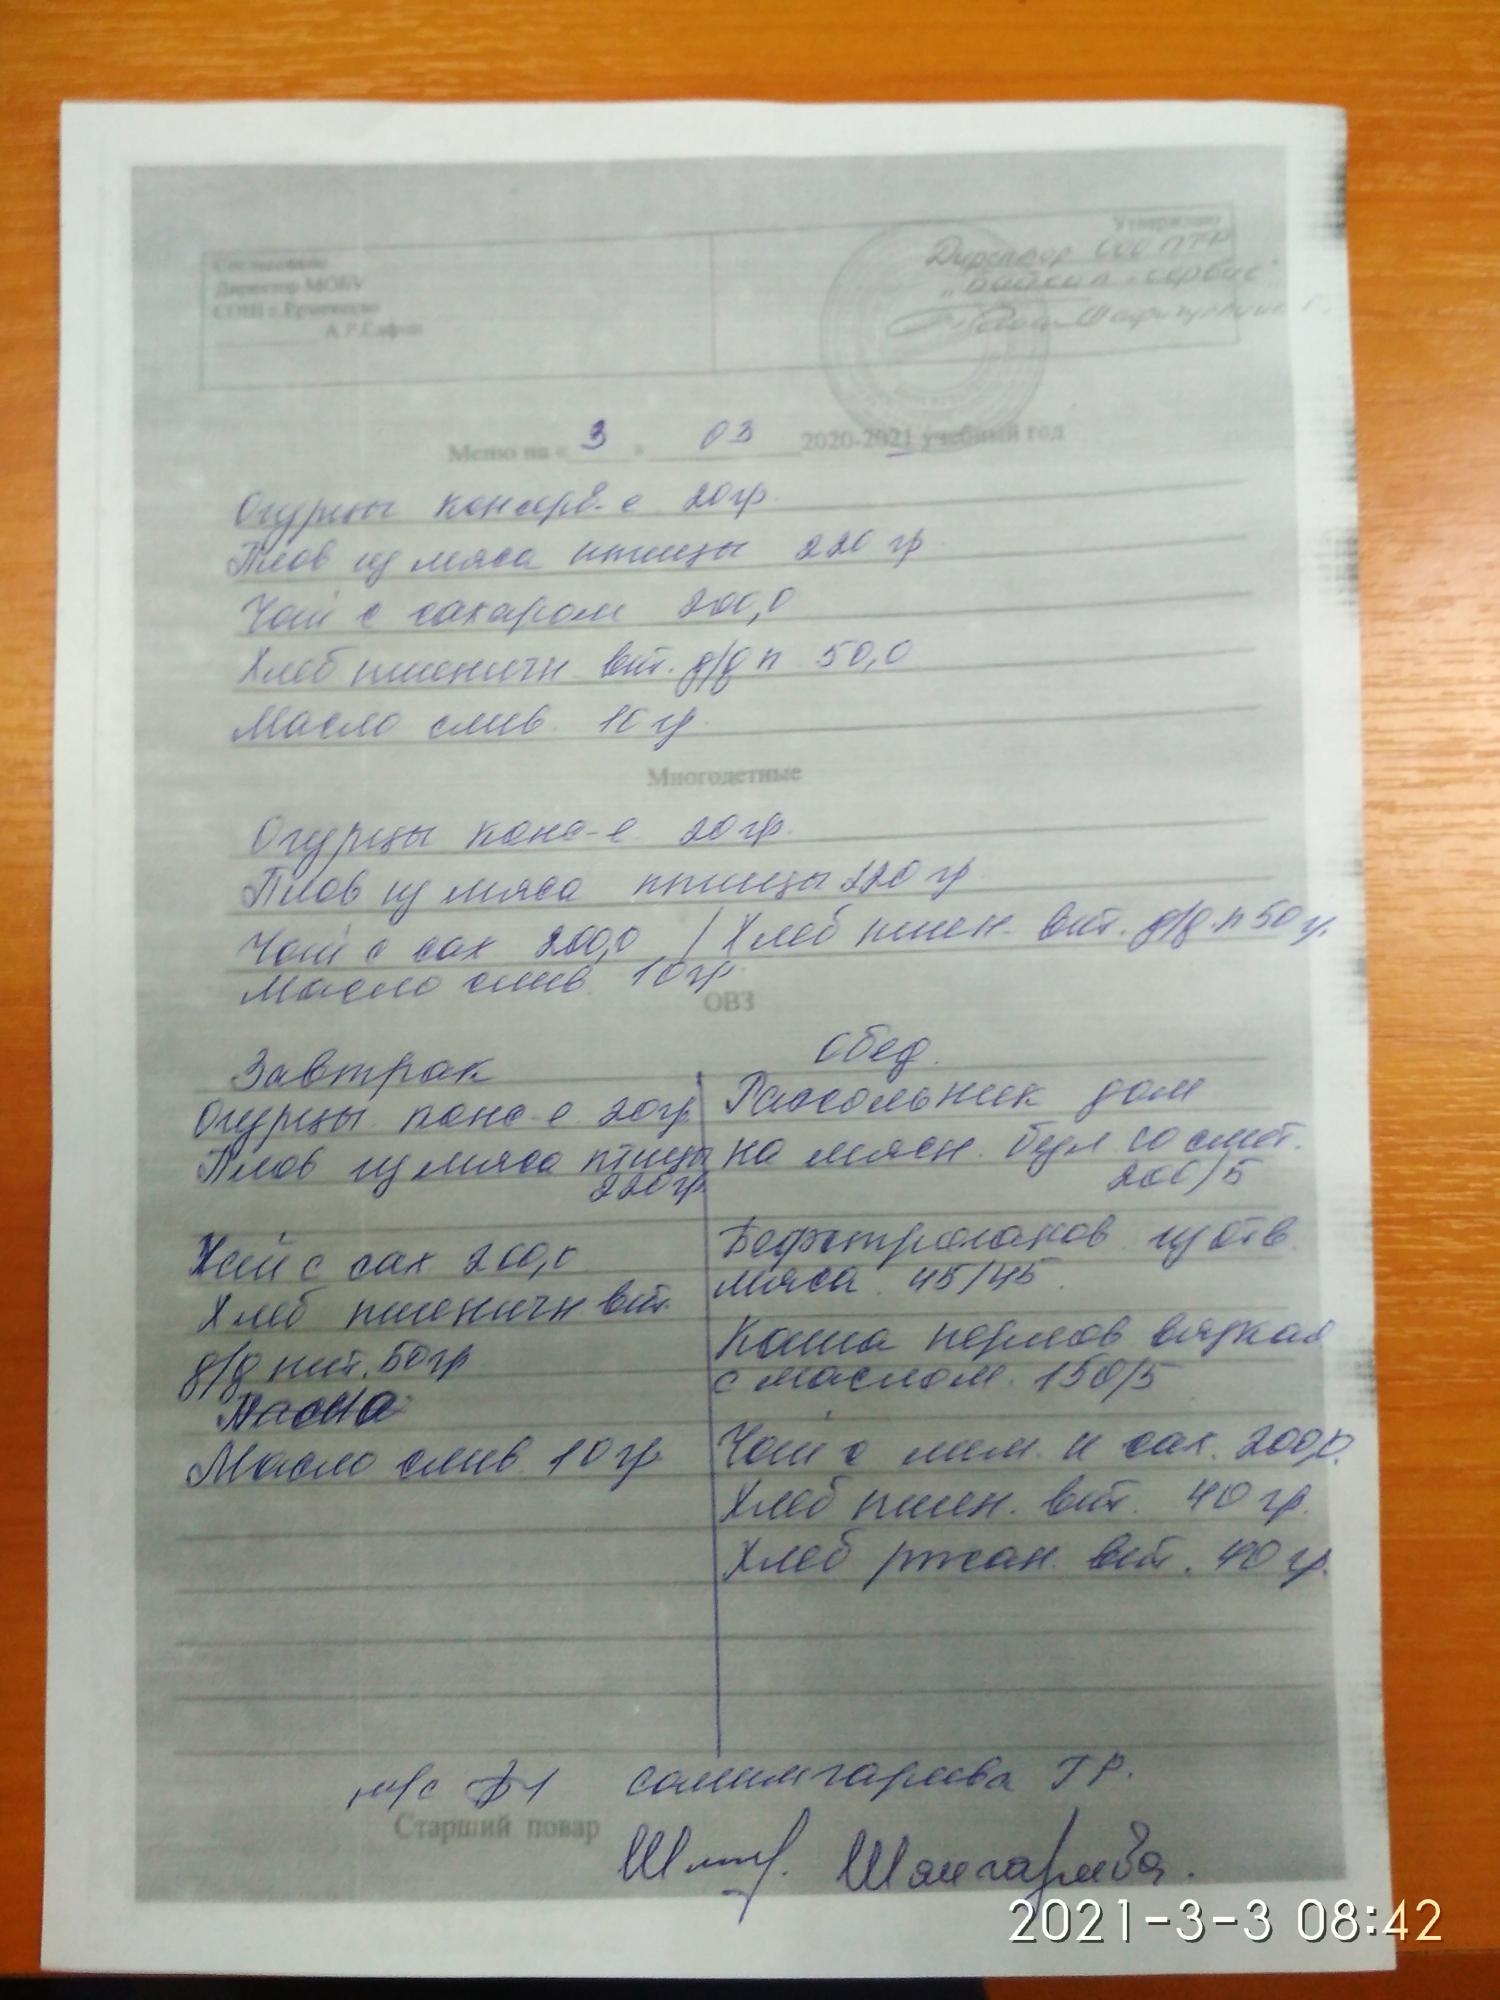 Согласовано
Директор МОБУ
СОШ с.Ермекеево
А.Р.Сафин
Утверждаю
Директор ООО ПТР
"Байкал-сервис"
Меню на « 3 » 03 2020-2021 учебный год
Огурцы консерв-е 20гр.
Плов из мяса птицы 220 гр
Чай с сахаром 200,0
Хлеб пшеничн вит. д/д п 50,0
Масло слив. 10 гр.
Многодетные
Огурцы конс-е 20гр.
Плов из мяса птицы 220 гр.
Чай с сах 200,0 / Хлеб пшен. вит. д/д.п 50 гр.
Масло слив. 10гр.
ОВЗ
Завтрак
Огурцы конс-е 20гр.
Плов из мяса птицы
220гр.
Чай с сах 200,0
Хлеб пшеничн вит.
д/д пит. 50гр
Масло слив. 10 гр.
Обед.
Рассольник дом
на мясн. бул. со смет.
200/5
Бефстроганов из отв.
мяса 45/45
Каша перлов вязкая
с маслом. 150/5
Чай с лим. и сах. 200,0.
Хлеб пшен. вит. 40 гр.
Хлеб ржан. вит. 40 гр.
м/с Салимгареева Г Р.
Старший повар
Шангареева.
2021-3-3 08:42